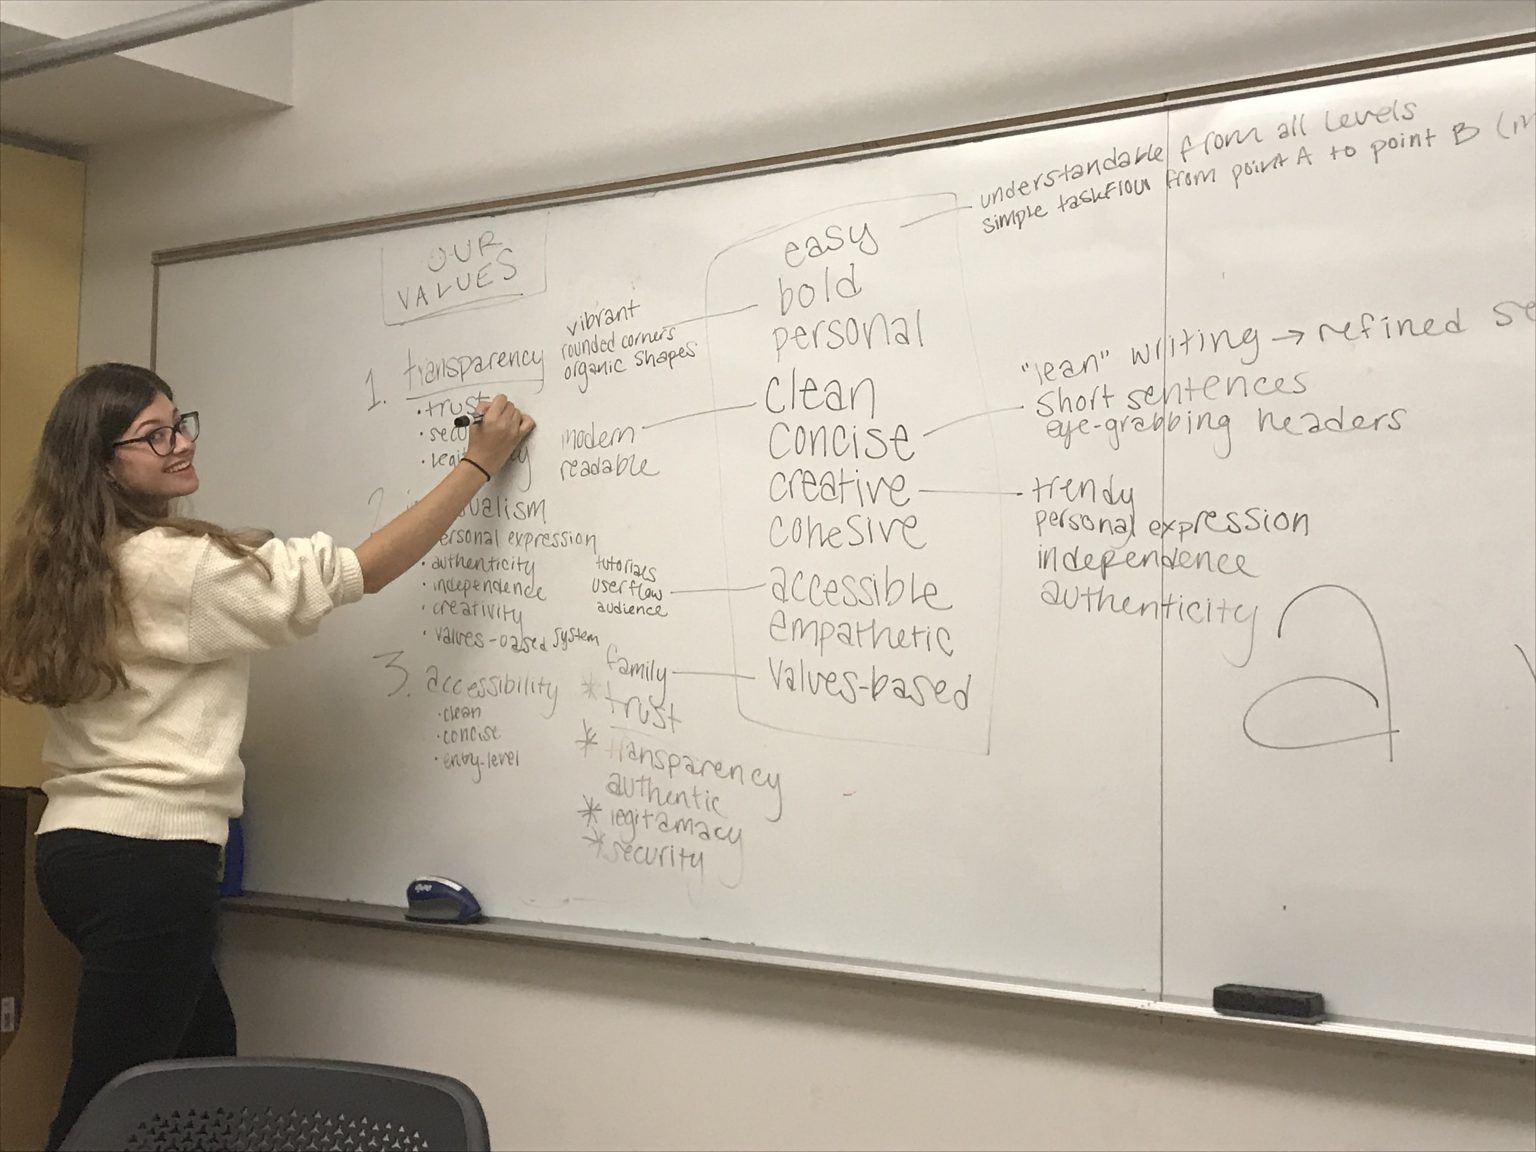 OUR
VALUES
1. transparency
• trust
2.
personal expression
• authenticity
• independence
• creativity
• values-based system
3. accessibility
• clean
• concise
• entry-level
vibrant
rounded corners
organic shapes
modern
readable
tutorials
userflow
audience
family
* trust
* transparency
authentic
* legitamacy
* security
easy
bold
personal
clean
concise
creative
cohesive
accessible
empathetic
values-based
understandable from all levels
simple taskflow from point A to point B
"lean" writing → refined
short sentences
eye-grabbing headers
trendy
personal expression
independence
authenticity
a
expo